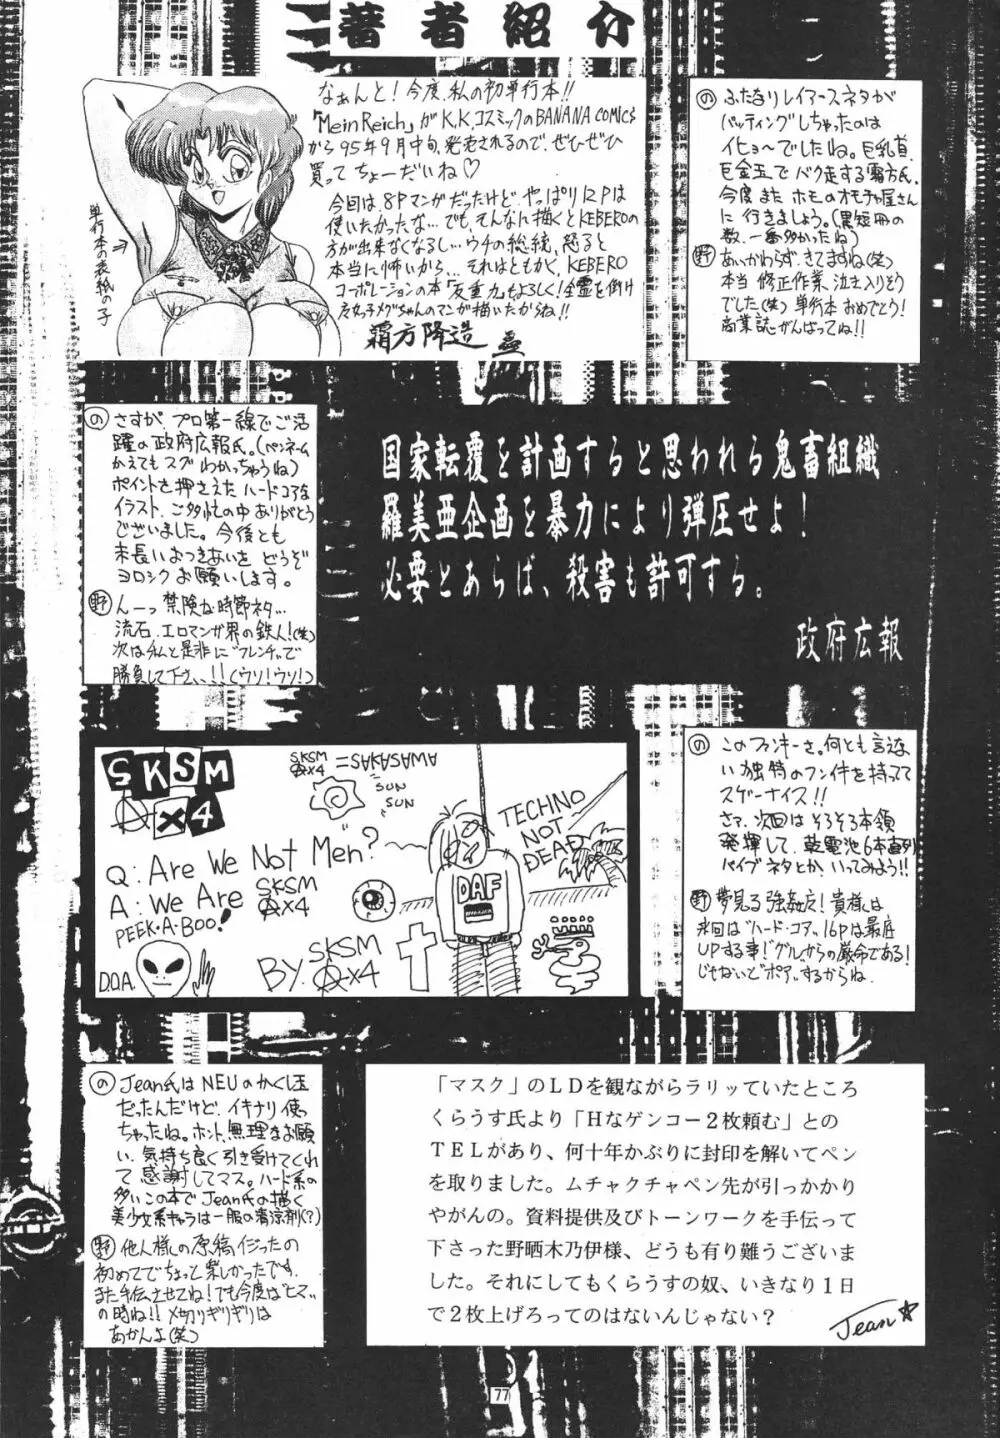 著者紹介
なぁんと!今度、私の初単行本!!
「MeinReich」がK.K.コスミックのBANANA COMICS
から95年9月中旬、発売されるので、ぜひぜひ
買ってちょーだいね♡
今回は、8Pマンガだったけど、やっぱり12Pは
使いたかったな…でも、そんなに描くとKEBEROの
方が出来なくなるし…ウチの総統、怒ると
本当に怖いから…それはともかく、KEBERO
コーポレーションの本
もよろしく!全霊を傾け
メグちゃんのマンが描いたからね!!
霜方降造
単行本の表紙の子
の ふたなりレイアースネタが
バッティングしちゃったのは
イヒョ〜でしたね。巨乳
巨金玉でバク走する霜方氏、
今度またホモのオモチャ屋さん
に行きましょう。(黒短冊の
数、一番多かったね)
野 あいかわらず、きてますね(笑)
本当修正作業、泣き入りそう
でした(笑)単行本おめでとう!
商業誌がんばってね!!
の さすが、プロ第一線でご活
躍の政府広報氏。(ペンネーム
かえてもスグわかっちゃうね)
ポイントを押さえたハードコアな
イラスト、ご多忙の中ありがとう
ございました。今後とも
末長いおつきあいをどうぞ
ヨロシクお願いします。
野 んーっ禁険な時節ネタ…
流石、エロマンガ界の鉄人!(笑)
次は私と是非に"フレンチ"で
勝負して下さい、!!(ウソ!ウソ!)
国家転覆を計画すると思われる鬼畜組織
羅美亜企画を暴力により弾圧せよ!
必要とあらば、殺害も許可する。
政府広報
SKSM
A×4
SKSM
A×4 =SAKASAWA
SUN
SUN
Q: Are We Not Men?
A: We Are SKSM
A×4
PEEK・A・BOO!
D.O.A.
BY. SKSM
A-×4
TECHNO
NOT
DEAD
DAF
の このファンキーさ。何とも言えな
い独特のフン件を持ってて
スゲーナイス!!
さて、次回はそろそろ本領
発揮して、乾電池6本直列
バイブネタとか、いってみよう!!
野 夢見る強姦友!貴様は
次回は"ハード・コア"、16Pは最底
UPする事!グルからの厳命である!
じゃないと"ポア"するからね。
の Jean氏はNEUのかくし玉
だったんだけど、イキナリ使っ
ちゃったね。ホント、無理なお願
い、気持ち良く引き受けてくれ
て感謝してマス。ハード系の
多いこの本でJean氏の描く
美少女系キャラは一服の清涼剤(?)
野 他人様の原稿イジったの
初めてでちょっと楽しかったです。
また手伝させてね!でも今度は"ヒマ"
の時ね!!〆切りギリギリは
あかんよ(笑)
「マスク」のLDを観ながらラリッていたところ
くらうす氏より「Hなゲンコー2枚頼む」との
TELがあり、何十年かぶりに封印を解いてペン
を取りました。ムチャクチャペン先が引っかかり
やがんの。資料提供及びトーンワークを手伝って
下さった野晒木乃伊様、どうも有り難うございま
した。それにしてもくらうすの奴、いきなり1日
で2枚上げろってのはないんじゃない?
Jean☆
77